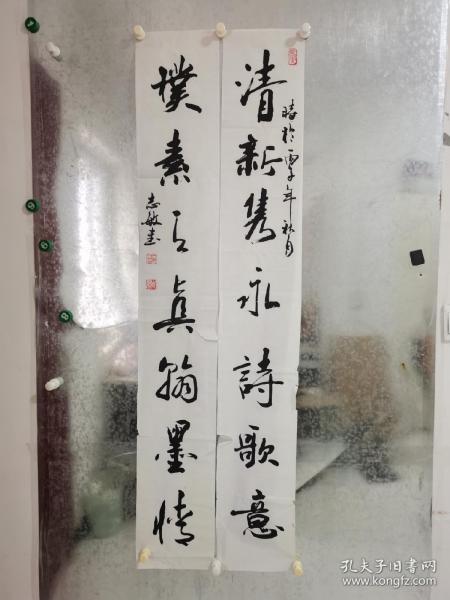 清新隽永詩歌意
時於丙子年秋月
樸素天真翰墨情
志敏書
孔夫子旧书网
www.kongfz.com